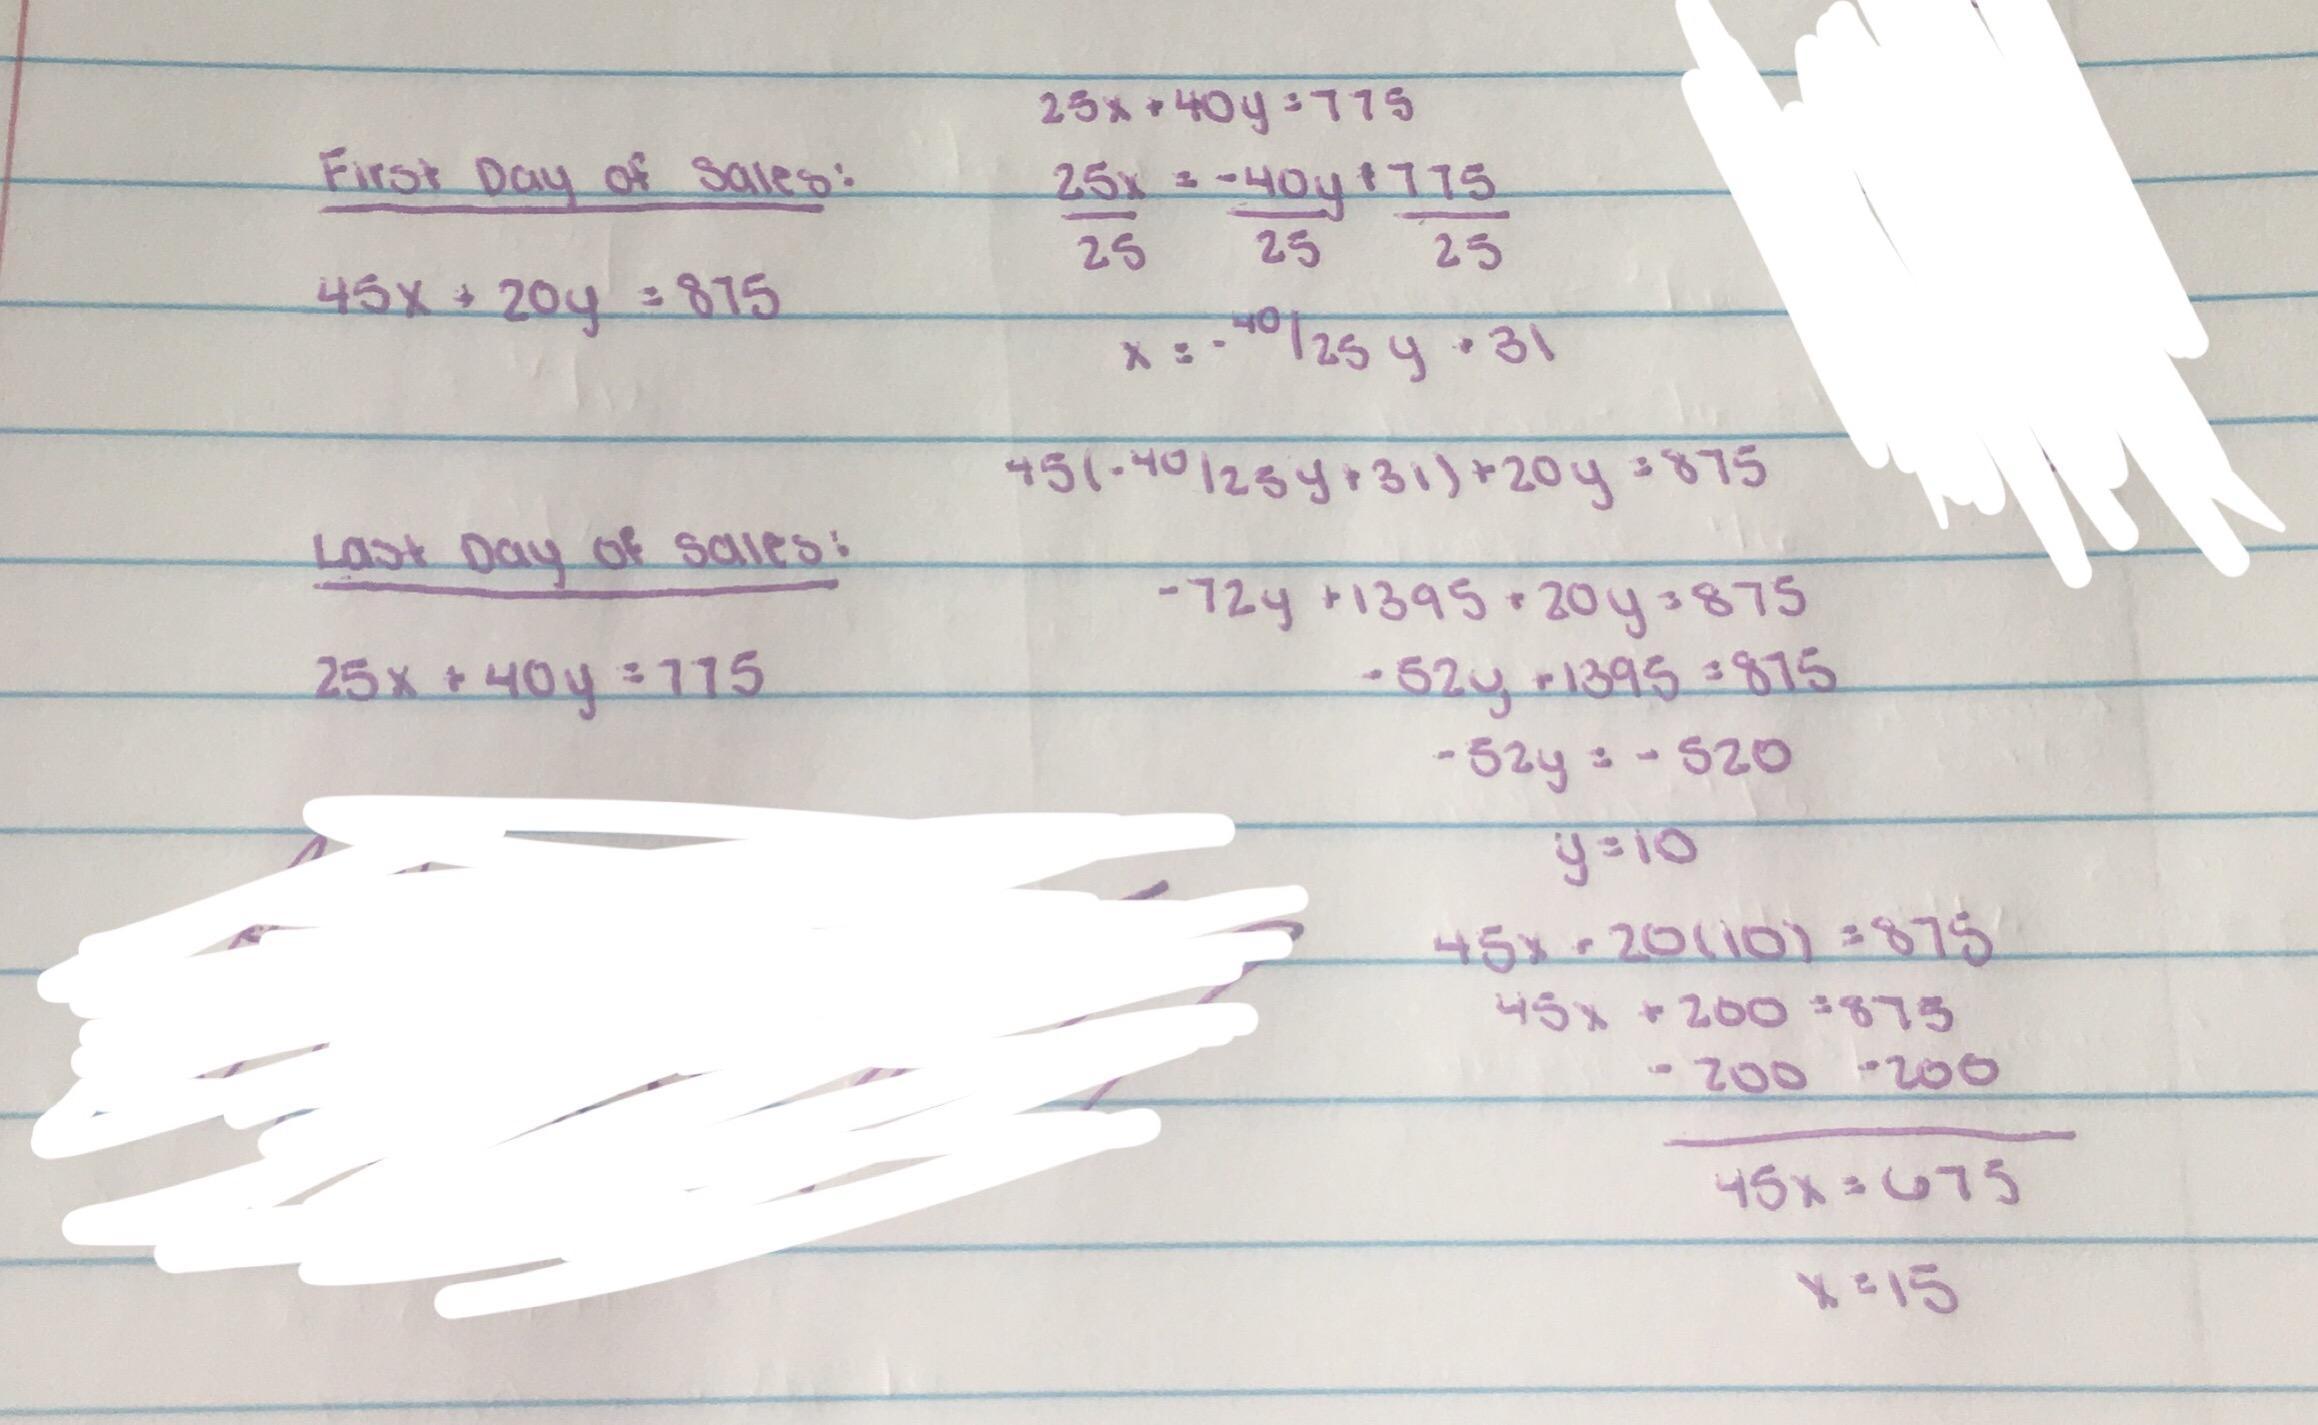 First Day of Sales:
45x + 20y = 875
Last Day of Sales:
25x + 40y = 775
25x + 40y = 775
25x = -40y + 775
25 25 25
x = -40/25 y + 31
45(-40/25y + 31) + 20y = 875
-72y + 1395 + 20y = 875
-52y + 1395 = 875
-52y = -520
y = 10
45x + 20(10) = 875
45x + 200 = 875
-200 -200
45x = 675
x = 15